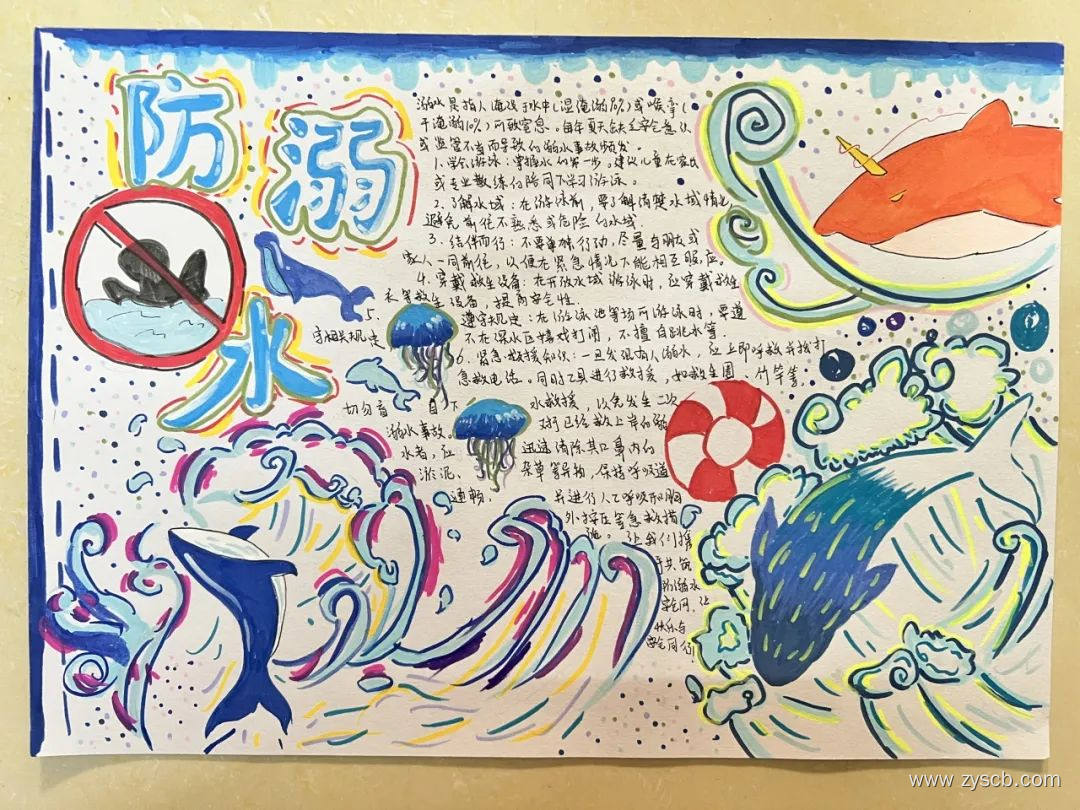 防溺水
溺水是指人淹没于水中(湿淹溺90%)或喉挛(
干淹溺10%)所致窒息。每年夏天缺乏安全意识
或监管不当而导致的溺水事故频发。
1.学会游泳:掌握水的第一步。建议儿童在家长
或专业教练的陪同下学习游泳。
2.了解水域:在游泳前,要了解清楚水域情况,
避免前往不熟悉或危险的水域。
3.结伴而行:不要单独行动,尽量与朋友或
家人一同前往,以便在紧急情况下能相互照应。
4.穿戴救生设备:在开放水域游泳时,应穿戴救生
衣等救生设备,提高安全性。
5.遵守规定:在游泳池等场所游泳时,要遵
守相关规定 不在深水区嬉戏打闹,不擅自跳水等
6.紧急救援知识:一旦发现有人溺水,应立即呼救并拨打
急救电话。同时工具进行救援,如救生圈、竹竿等,
切勿盲目下水救援,以免发生二次
溺水事故。对于已经救上岸的溺
水者,应迅速清除其口鼻内的
淤泥、杂草等异物,保持呼吸道
通畅,并进行人工呼吸和胸
外按压等急救措
施。让我们携
手共筑
防溺水
安全网,让
快乐与
安全同行
www.zyscb.com